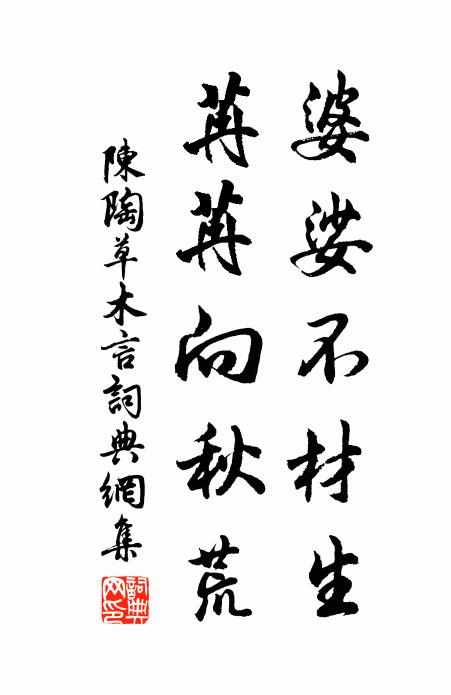 婆娑不材生
苒苒向秋荒
陳陶草木言詞典網集
詞典
网印